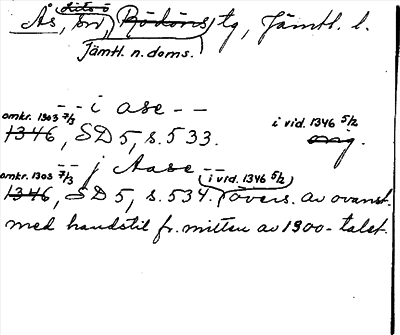 Ås, sn, Rödöns tg, Jämtl. l.
Jämtl. n. doms.
-- i ase --
omkr. 1303 7/3 i vid. 1346 5/2
1346, SD 5, s. 533. orig.
-- j Aase --
omkr. 1303 7/3 i vid. 1346 5/2
1346, SD 5, s. 534. (övers. av ovanst.
med handstil fr. mitten av 1900-talet.